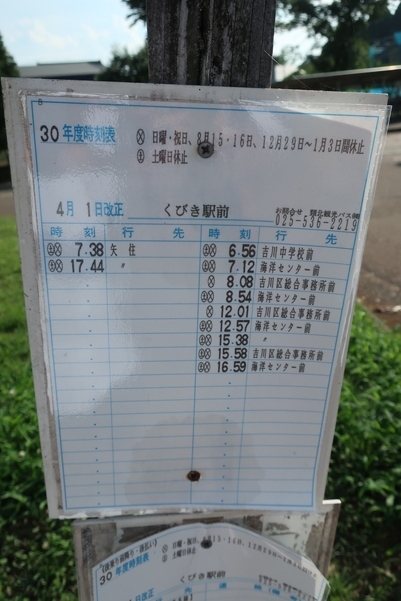 30年度時刻表
Ⓧ 日曜・祝日、8月15・16日、12月29日~1月3日間休止
㊏ 土曜日休止
4月 1日改正 くびき駅前
お問合せ 頸北観光バス㈱
025-536-2219
時刻 行先 時刻 行先
㊏Ⓧ 7.38 矢住 ㊏Ⓧ 6.56 吉川中学校前
㊏Ⓧ 17.44 〃 ㊏Ⓧ 7.12 海洋センター前
Ⓧ 8.08 吉川区総合事務所前
㊏Ⓧ 8.54 海洋センター前
Ⓧ 12.01 吉川区総合事務所前
㊏Ⓧ 12.57 海洋センター前
㊏Ⓧ 15.38 〃
㊏Ⓧ 15.58 吉川区総合事務所前
㊏Ⓧ 16.59 海洋センター前
Ⓧ 日曜・祝日、8月15・16日、12月29
㊏ 土曜日休止
30年度時刻表
くびき駅前
1日改正